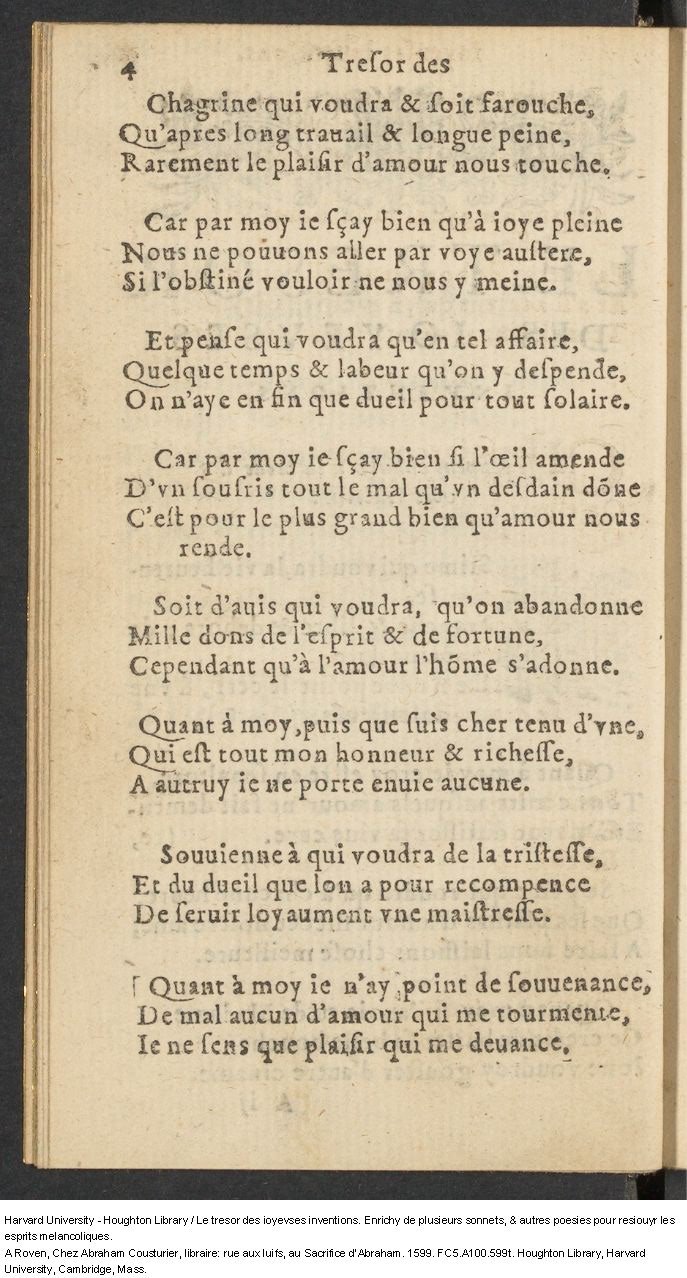 4 Treſor des
Chagrine qui voudra & ſoit farouche,
Qu'apres long trauail & longue peine,
Rarement le plaiſir d'amour nous touche.
Car par moy ie ſçay bien qu'à ioye pleine
Nous ne pouuons aller par voye auſtere,
Si l'obſtiné vouloir ne nous y meine.
Et penſe qui voudra qu'en tel affaire,
Quelque temps & labeur qu'on y deſpende,
On n'aye en fin que dueil pour tout ſolaire.
Car par moy ie ſçay bien ſi l'œil amende
D'vn ſouſris tout le mal qu'vn deſdain dõne
C'eſt pour le plus grand bien qu'amour nous
rende.
Soit d'auis qui voudra, qu'on abandonne
Mille dons de l'eſprit & de fortune,
Cependant qu'à l'amour l'hõme s'adonne.
Quant à moy, puis que ſuis cher tenu d'vne,
Qui eſt tout mon honneur & richeſſe,
A autruy ie ne porte enuie aucune.
Souuienne à qui voudra de la triſteſſe,
Et du dueil que lon a pour recompence
De ſeruir loyaument vne maiſtreſſe.
Quant à moy ie n'ay point de ſouuenance,
De mal aucun d'amour qui me tourmente,
Ie ne ſens que plaiſir qui me deuance.
Harvard University - Houghton Library / Le tresor des ioyevses inventions. Enrichy de plusieurs sonnets, & autres poesies pour resiouyr les
esprits melancoliques.
A Roven, Chez Abraham Cousturier, libraire: rue aux Iuifs, au Sacrifice d'Abraham. 1599. FC5.A100.599t. Houghton Library, Harvard
University, Cambridge, Mass.